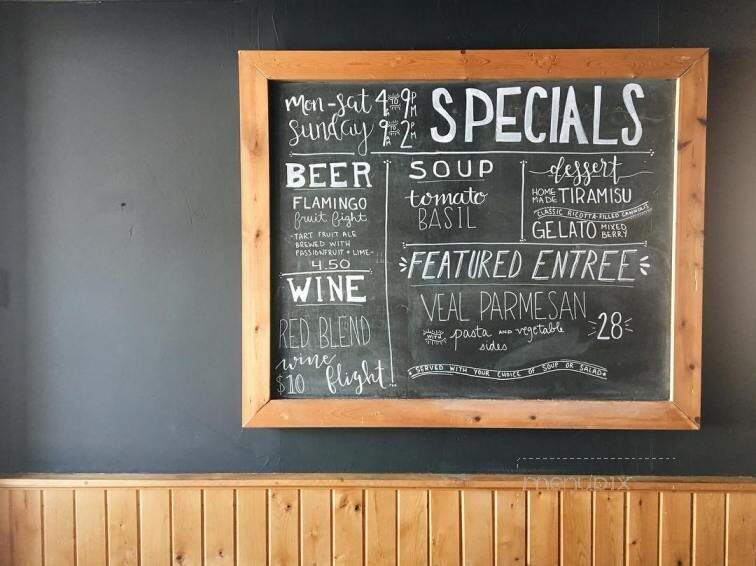 mon-sat 4 to 9 PM
Sunday 9 AM to 2 PM
SPECIALS
BEER
FLAMINGO
fruit fight
-TART FRUIT ALE
BREWED WITH
PASSIONFRUIT + LIME-
4.50
WINE
RED BLEND
wine
flight
$10
SOUP
tomato
BASIL
dessert
HOME MADE TIRAMISU
CLASSIC RICOTTA-FILLED CANNOLIS
GELATO MIXED BERRY
FEATURED ENTREE
VEAL PARMESAN
28
with pasta AND vegetable
sides
SERVED WITH YOUR CHOICE OF SOUP OR SALAD
menupix